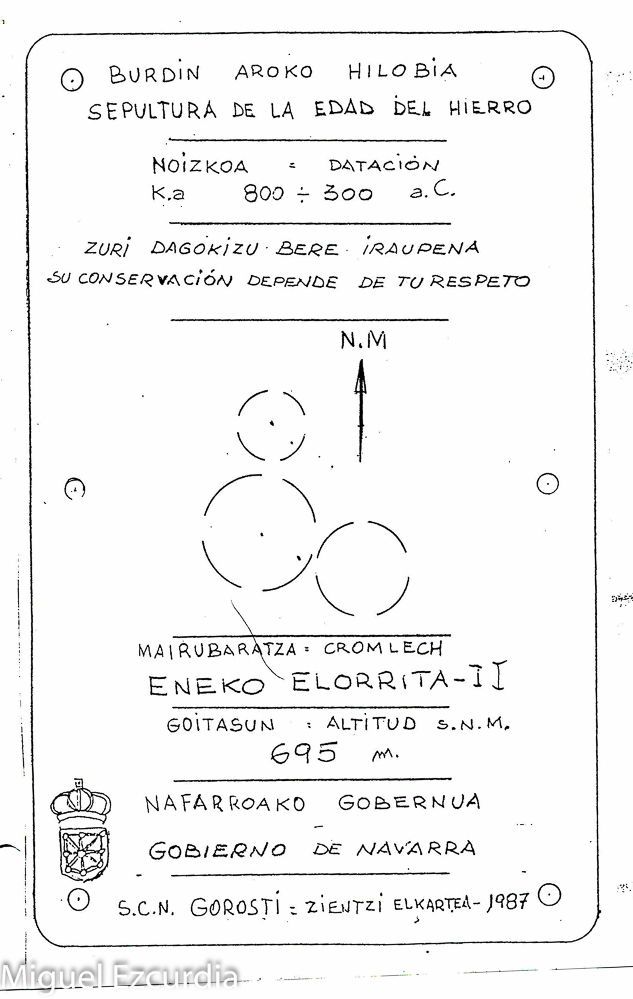 BURDIN AROKO HILOBIA
SEPULTURA DE LA EDAD DEL HIERRO
NOIZKOA = DATACIÓN
K.a 800 ÷ 300 a.C.
ZURI DAGOKIZU BERE IRAUPENA
SU CONSERVACIÓN DEPENDE DE TU RESPETO
N.M
MAIRUBARATZA = CROMLECH
ENEKO ELORRITA-II
GOITASUN : ALTITUD S.N.M.
695 m.
NAFARROAKO GOBERNUA
GOBIERNO DE NAVARRA
S.C.N. GOROSTI = ZIENTZI ELKARTEA-1987
Miguel Ezcurdia